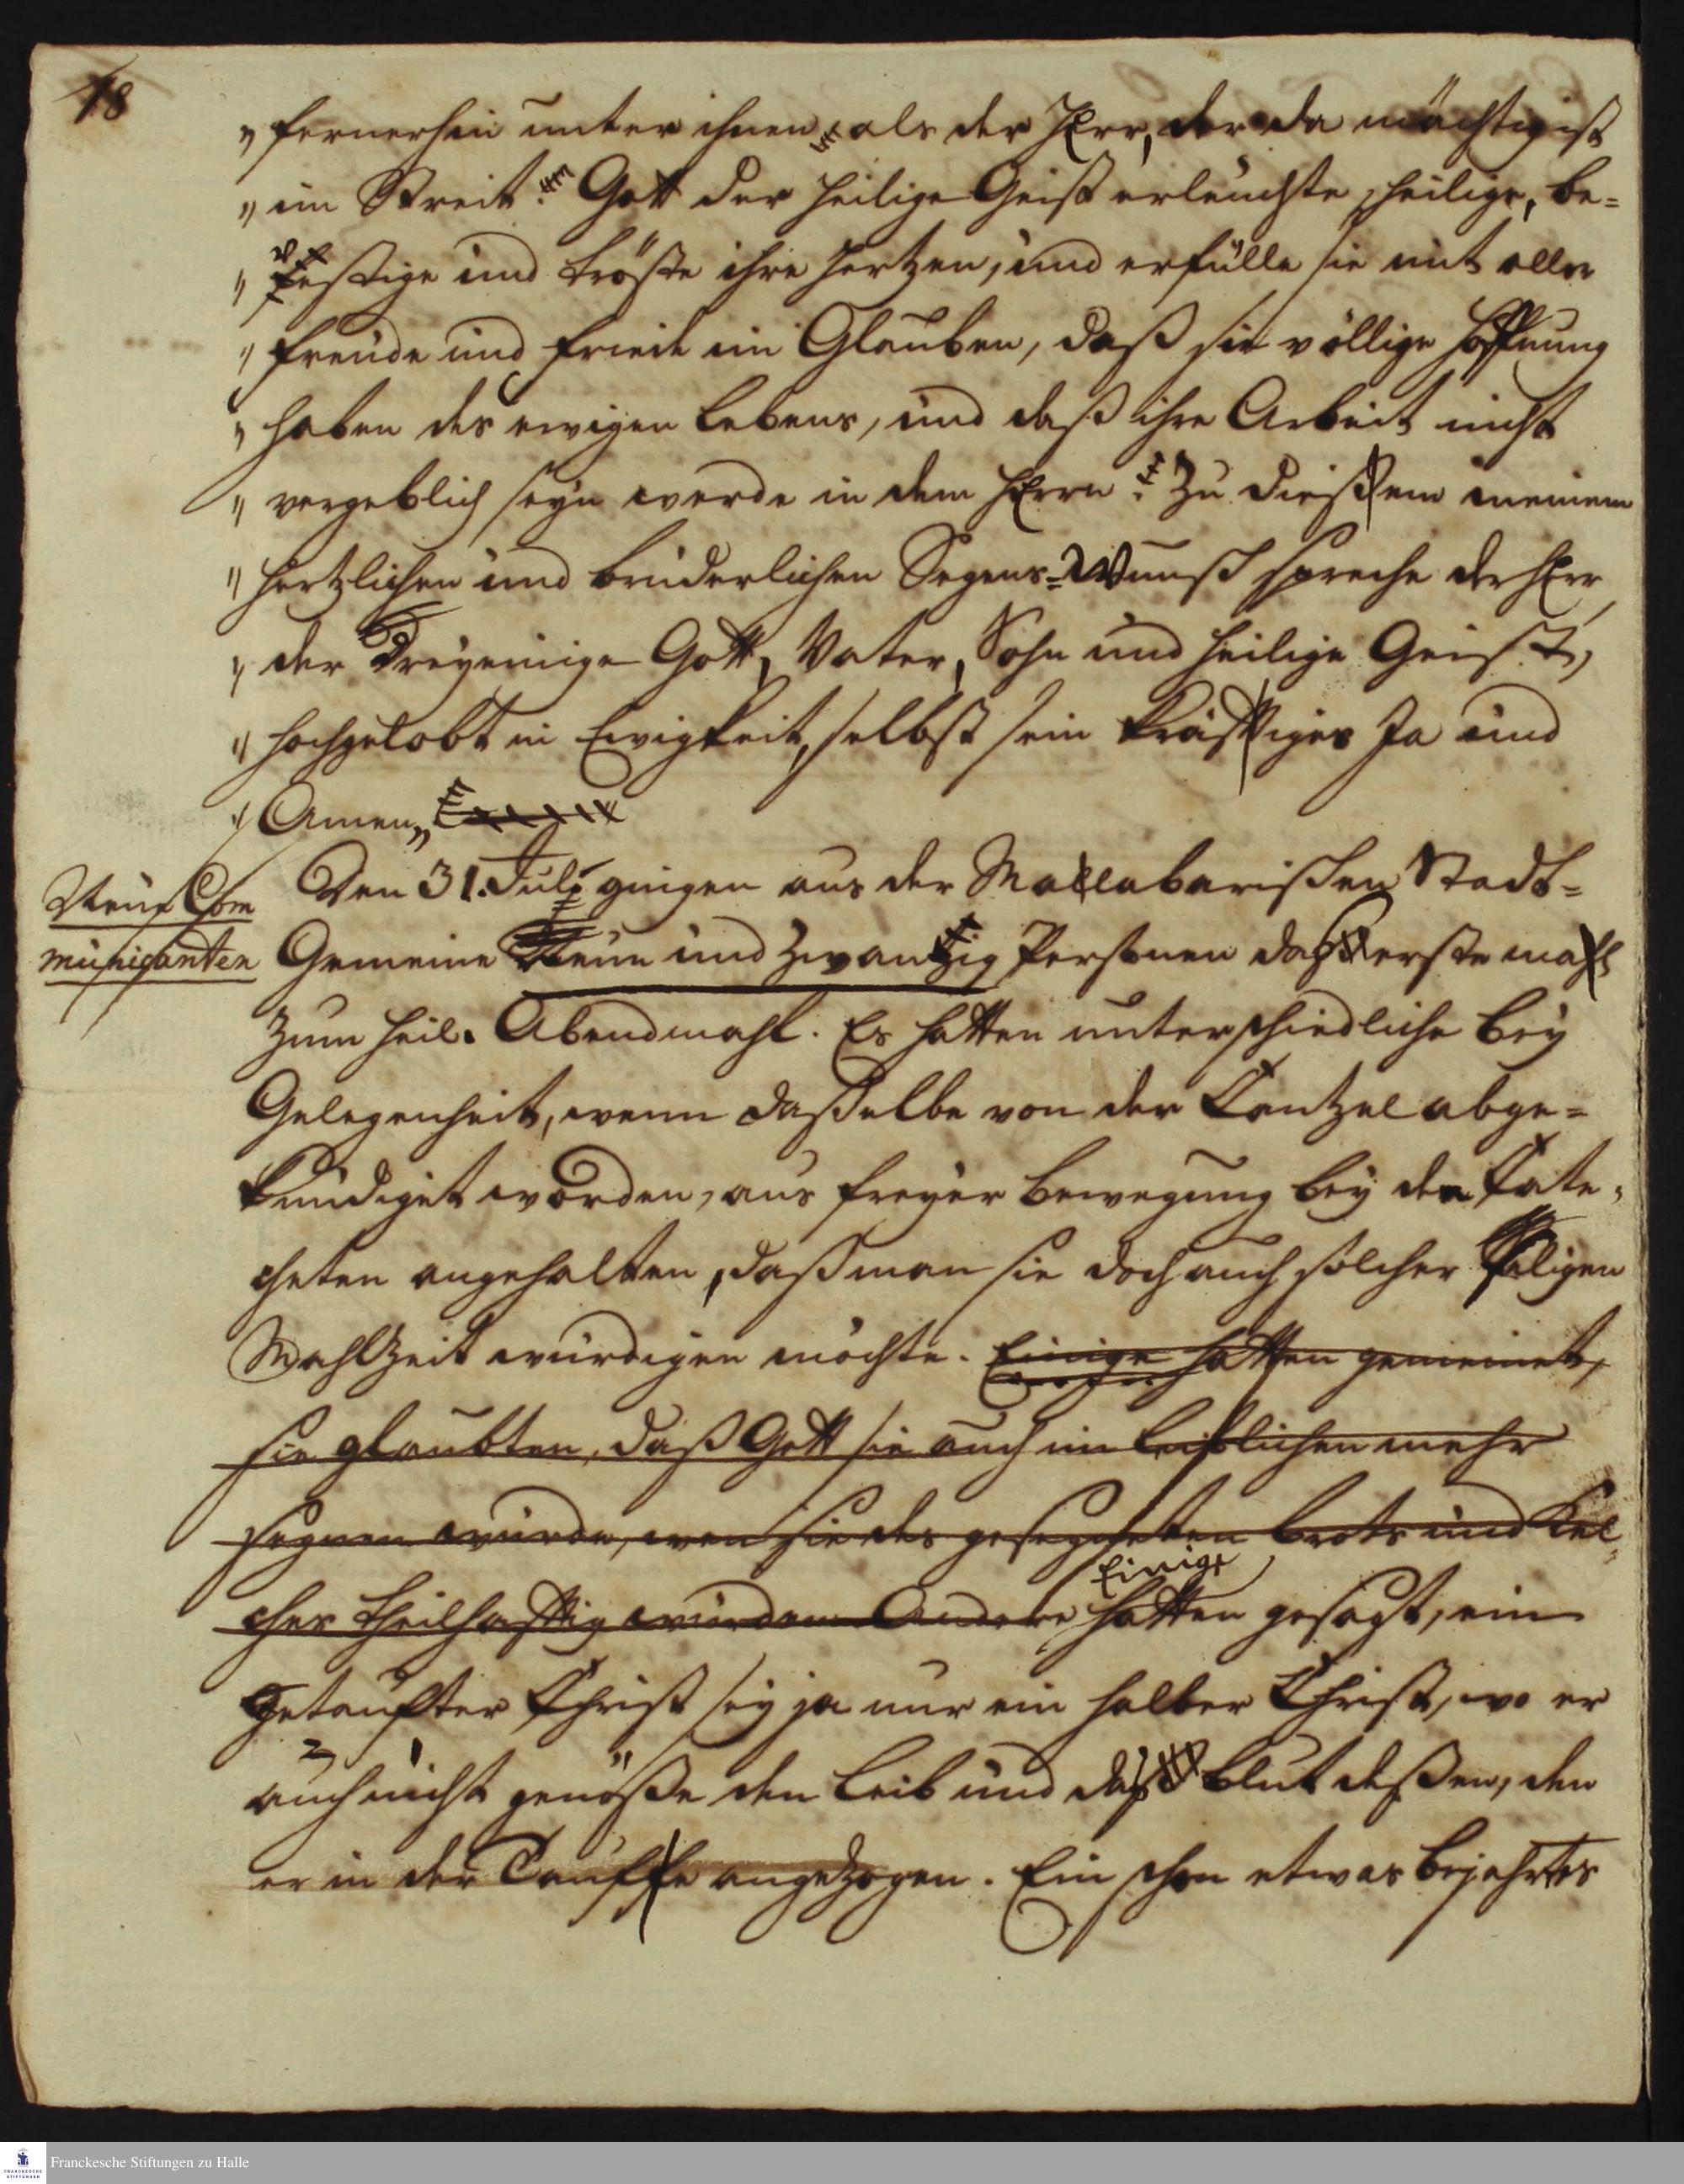 18
„ fernerhin unter ihnen, als der HErr, der da mächtig ist
„ im Streit. Gott der heilige Geist erleuchte, heilige, be-
„ festige und tröste ihre Hertzen, und erfülle sie mit aller
„ Freude und Friede im Glauben, daß sie völlige Hoffnung
„ haben des ewigen Lebens, und daß ihre Arbeit nicht
„ vergeblich seyn werde in dem HErrn. Zu dießem meinem
„ hertzlichen und brüderlichen Segens-Wunsch spreche der HErr
„ der Dreyeinige Gott, Vater, Sohn und heilige Geist,
„ hochgelobt in Ewigkeit, selbst sein kräfftiges Ja und
„ Amen„
Neue Com
municanten
Den 31. Julii gingen aus der Mallabarischen Stadt-
Gemeine Neun und zwantzig Personen das erste mahl
zum heil. Abendmahl. Es hatten unterschiedliche bey
Gelegenheit, wenn daßelbe von der Cantzel abge-
kündiget worden, aus freyer Bewegung bey den Cate-
cheten angehalten, daß man sie doch auch solcher seligen
Mahlzeit würdigen möchte. Einige hatten gemeinet,
sie glaubten, daß Gott sie auch im leiblichen mehr
segnen würde, wen sie des gesegneten Brots und Kel-
ches theilhafftig würden. Andere hatten gesagt, ein
Einige
getaufter Christ sey ja nur ein halber Christ, wo er
auch nicht genöße den Leib und das Blut deßen, den
er in der Tauffe angezogen. Ein schon etwas bejahrtes
Franckesche Stiftungen zu Halle
FRANCKESCHE
STIFTUNGEN